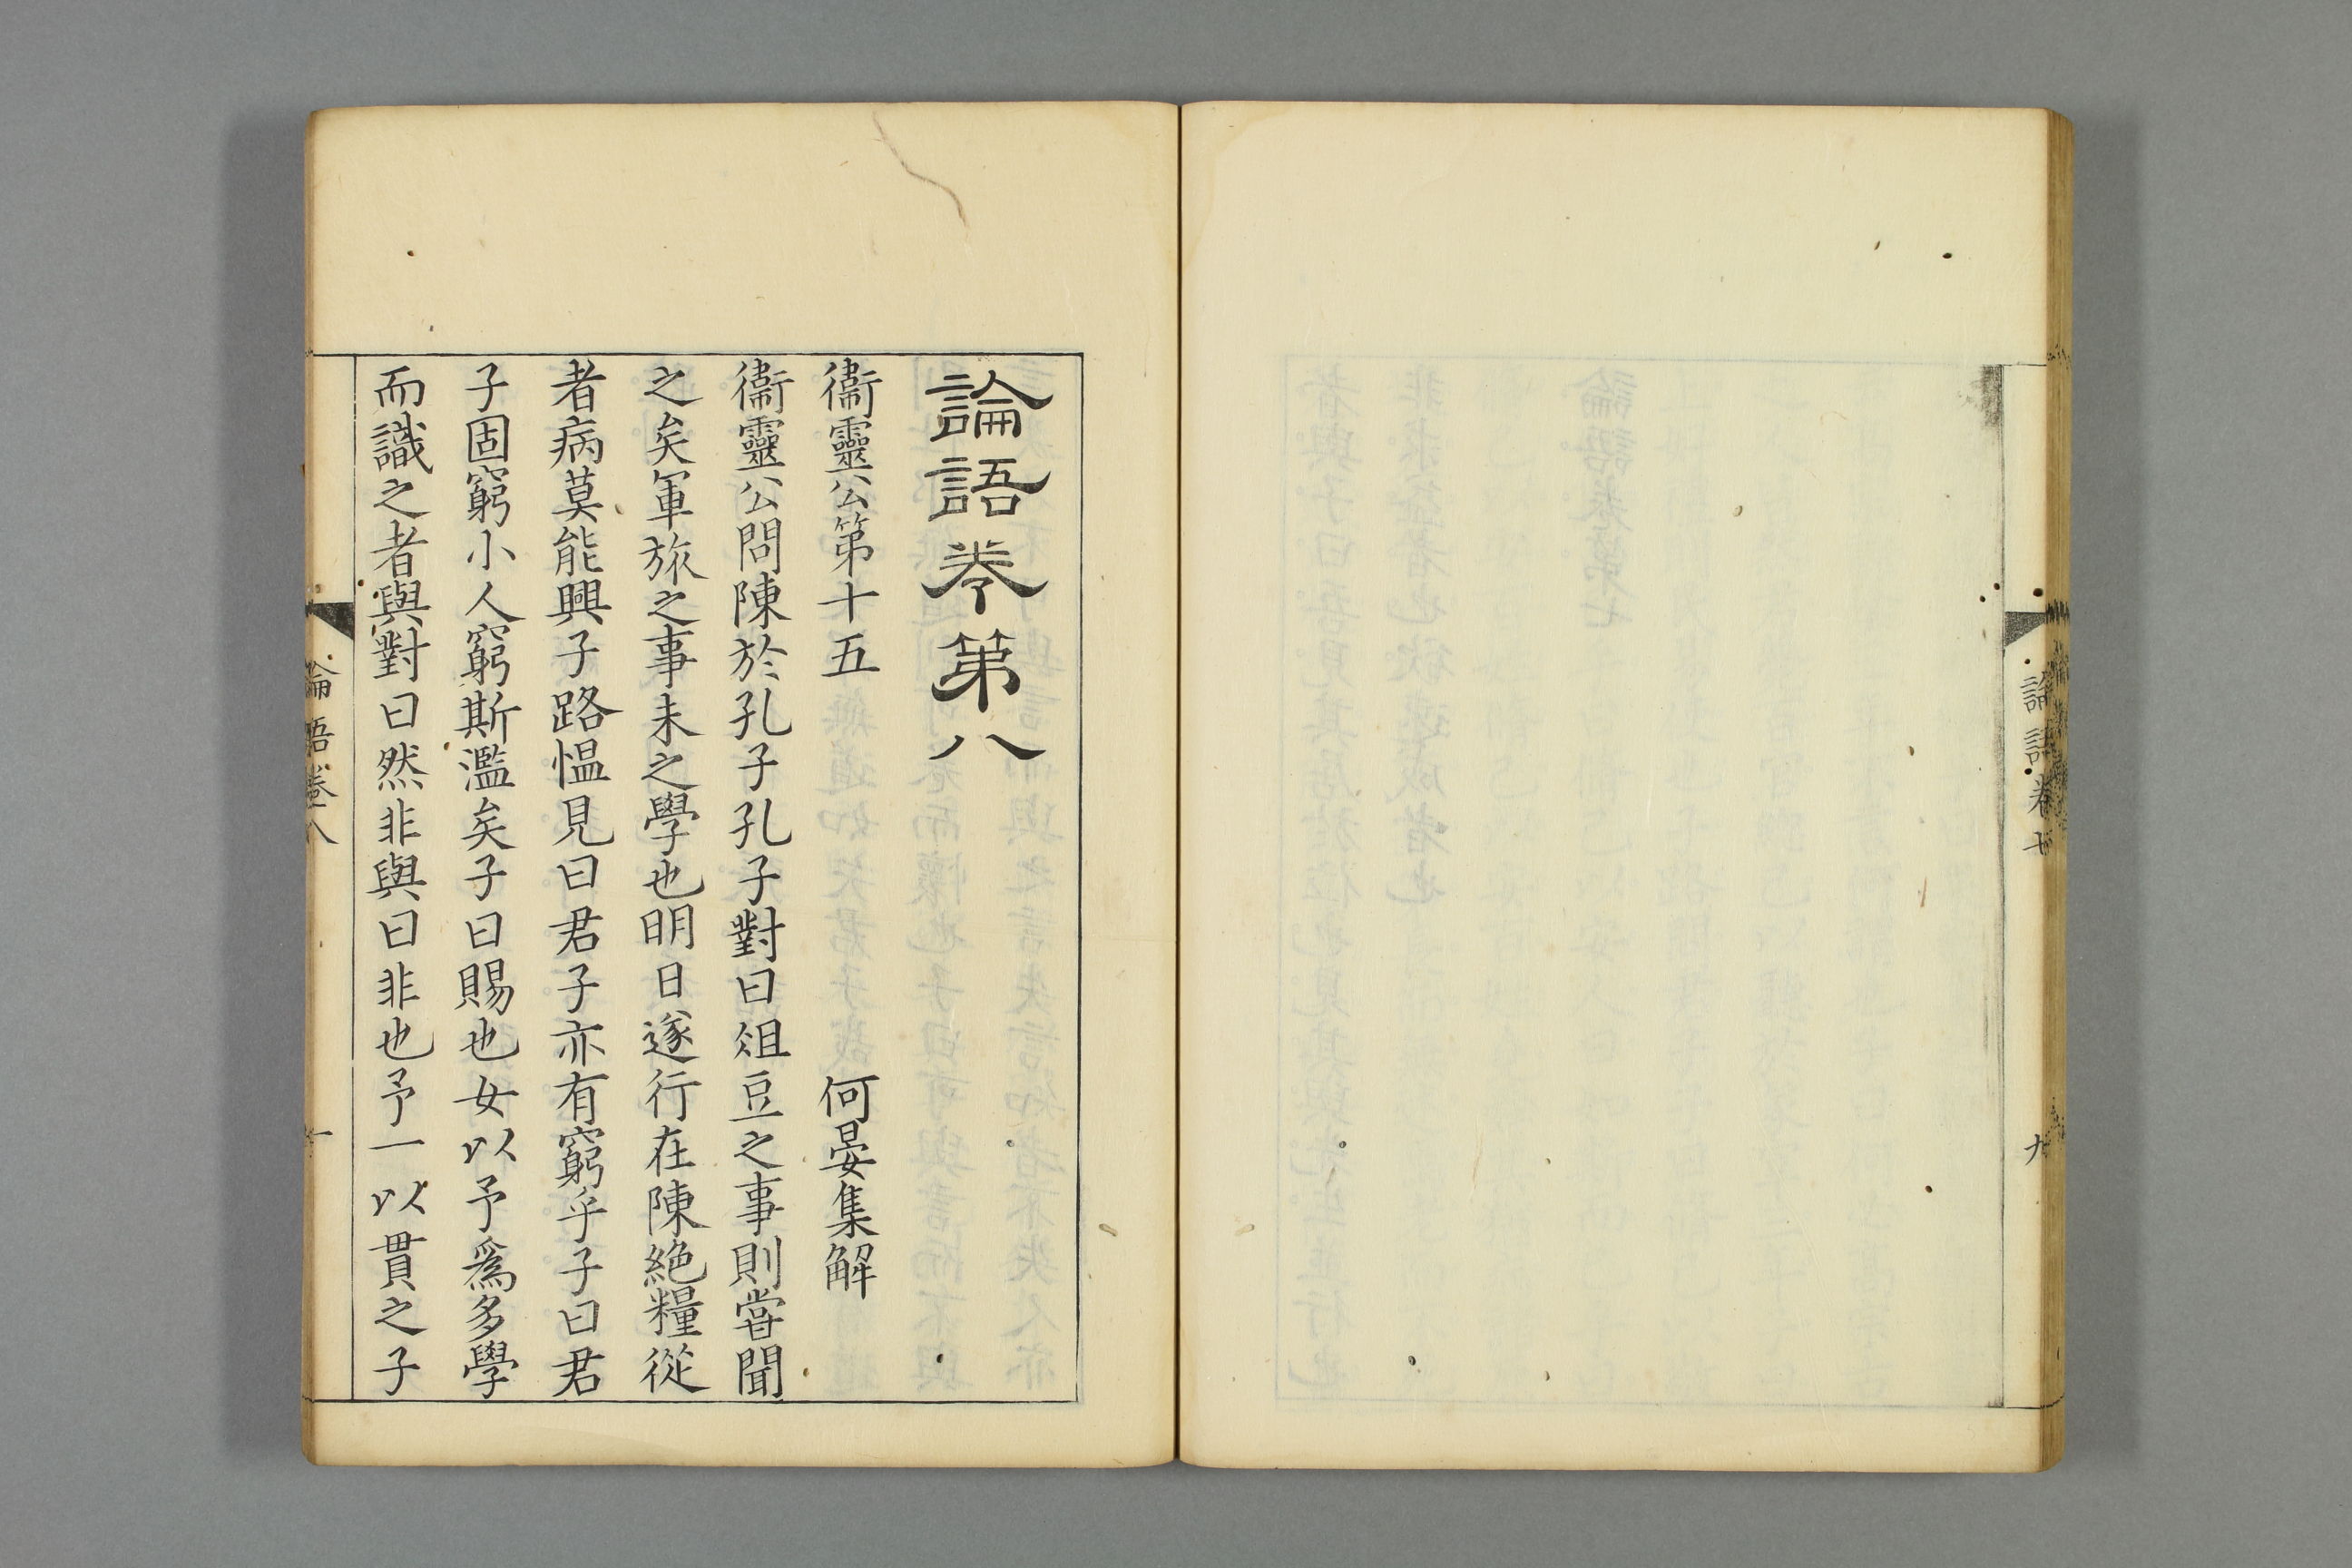 論語卷七
九
論語卷第八
衞靈公第十五 何晏集解
衞靈公問陳於孔子孔子對曰俎豆之事則嘗聞
之矣軍旅之事未之學也明日遂行在陳絶糧從
者病莫能興子路愠見曰君子亦有窮乎子曰君
子固窮小人窮斯濫矣子曰賜也女以予爲多學
而識之者與對曰然非與曰非也予一以貫之子
論語卷八
一